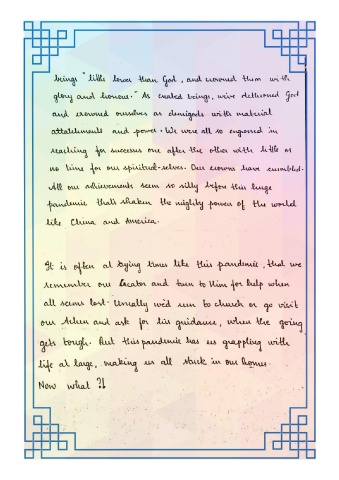 beings "little lower than God, and crowned them with
glory and honour." As created beings, we've dethroned God
and crowned ourselves as demigods with material
attatchments and power. We were all so engrossed in
reaching for successes one after the other with little or
no time for our spiritual-selves. Our crowns have crumbled.
All our achievements seem so silly before this huge
pandemic that's shaken the mighty power of the world
like China and America.
It is often at trying times like this pandemic, that we
remember our Creator and turn to Him for help when
all seems lost. Usually we'd run to church or go visit
our and ask for his guidance, when the going
gets tough. But this pandemic has us grappling with
life at large, making us all stuck in our homes.
Now what ?!